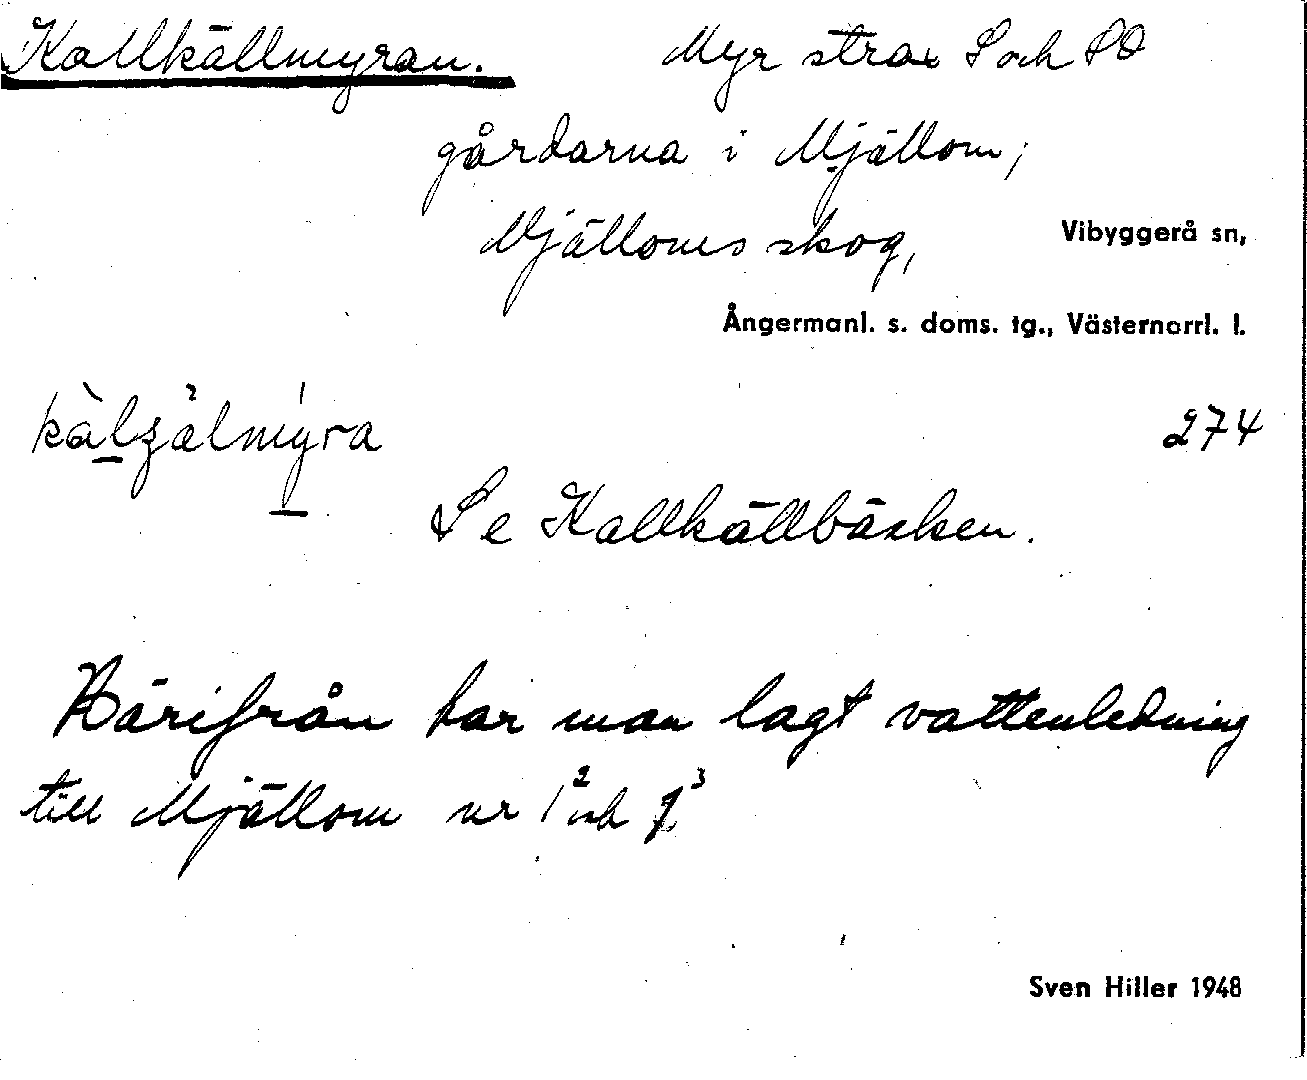 Kallkällmyran. Myr strax S och SO
gårdarna i Mjällom;
Mjälloms skog, Vibyggerå sn,
Ångermanl. s. doms. tg., Västernorrl. l.
274
Se Kallkällbäcken.
Härifrån har man lagt vattenledning
till Mjällom nr 1² och 1³
Sven Hiller 1948